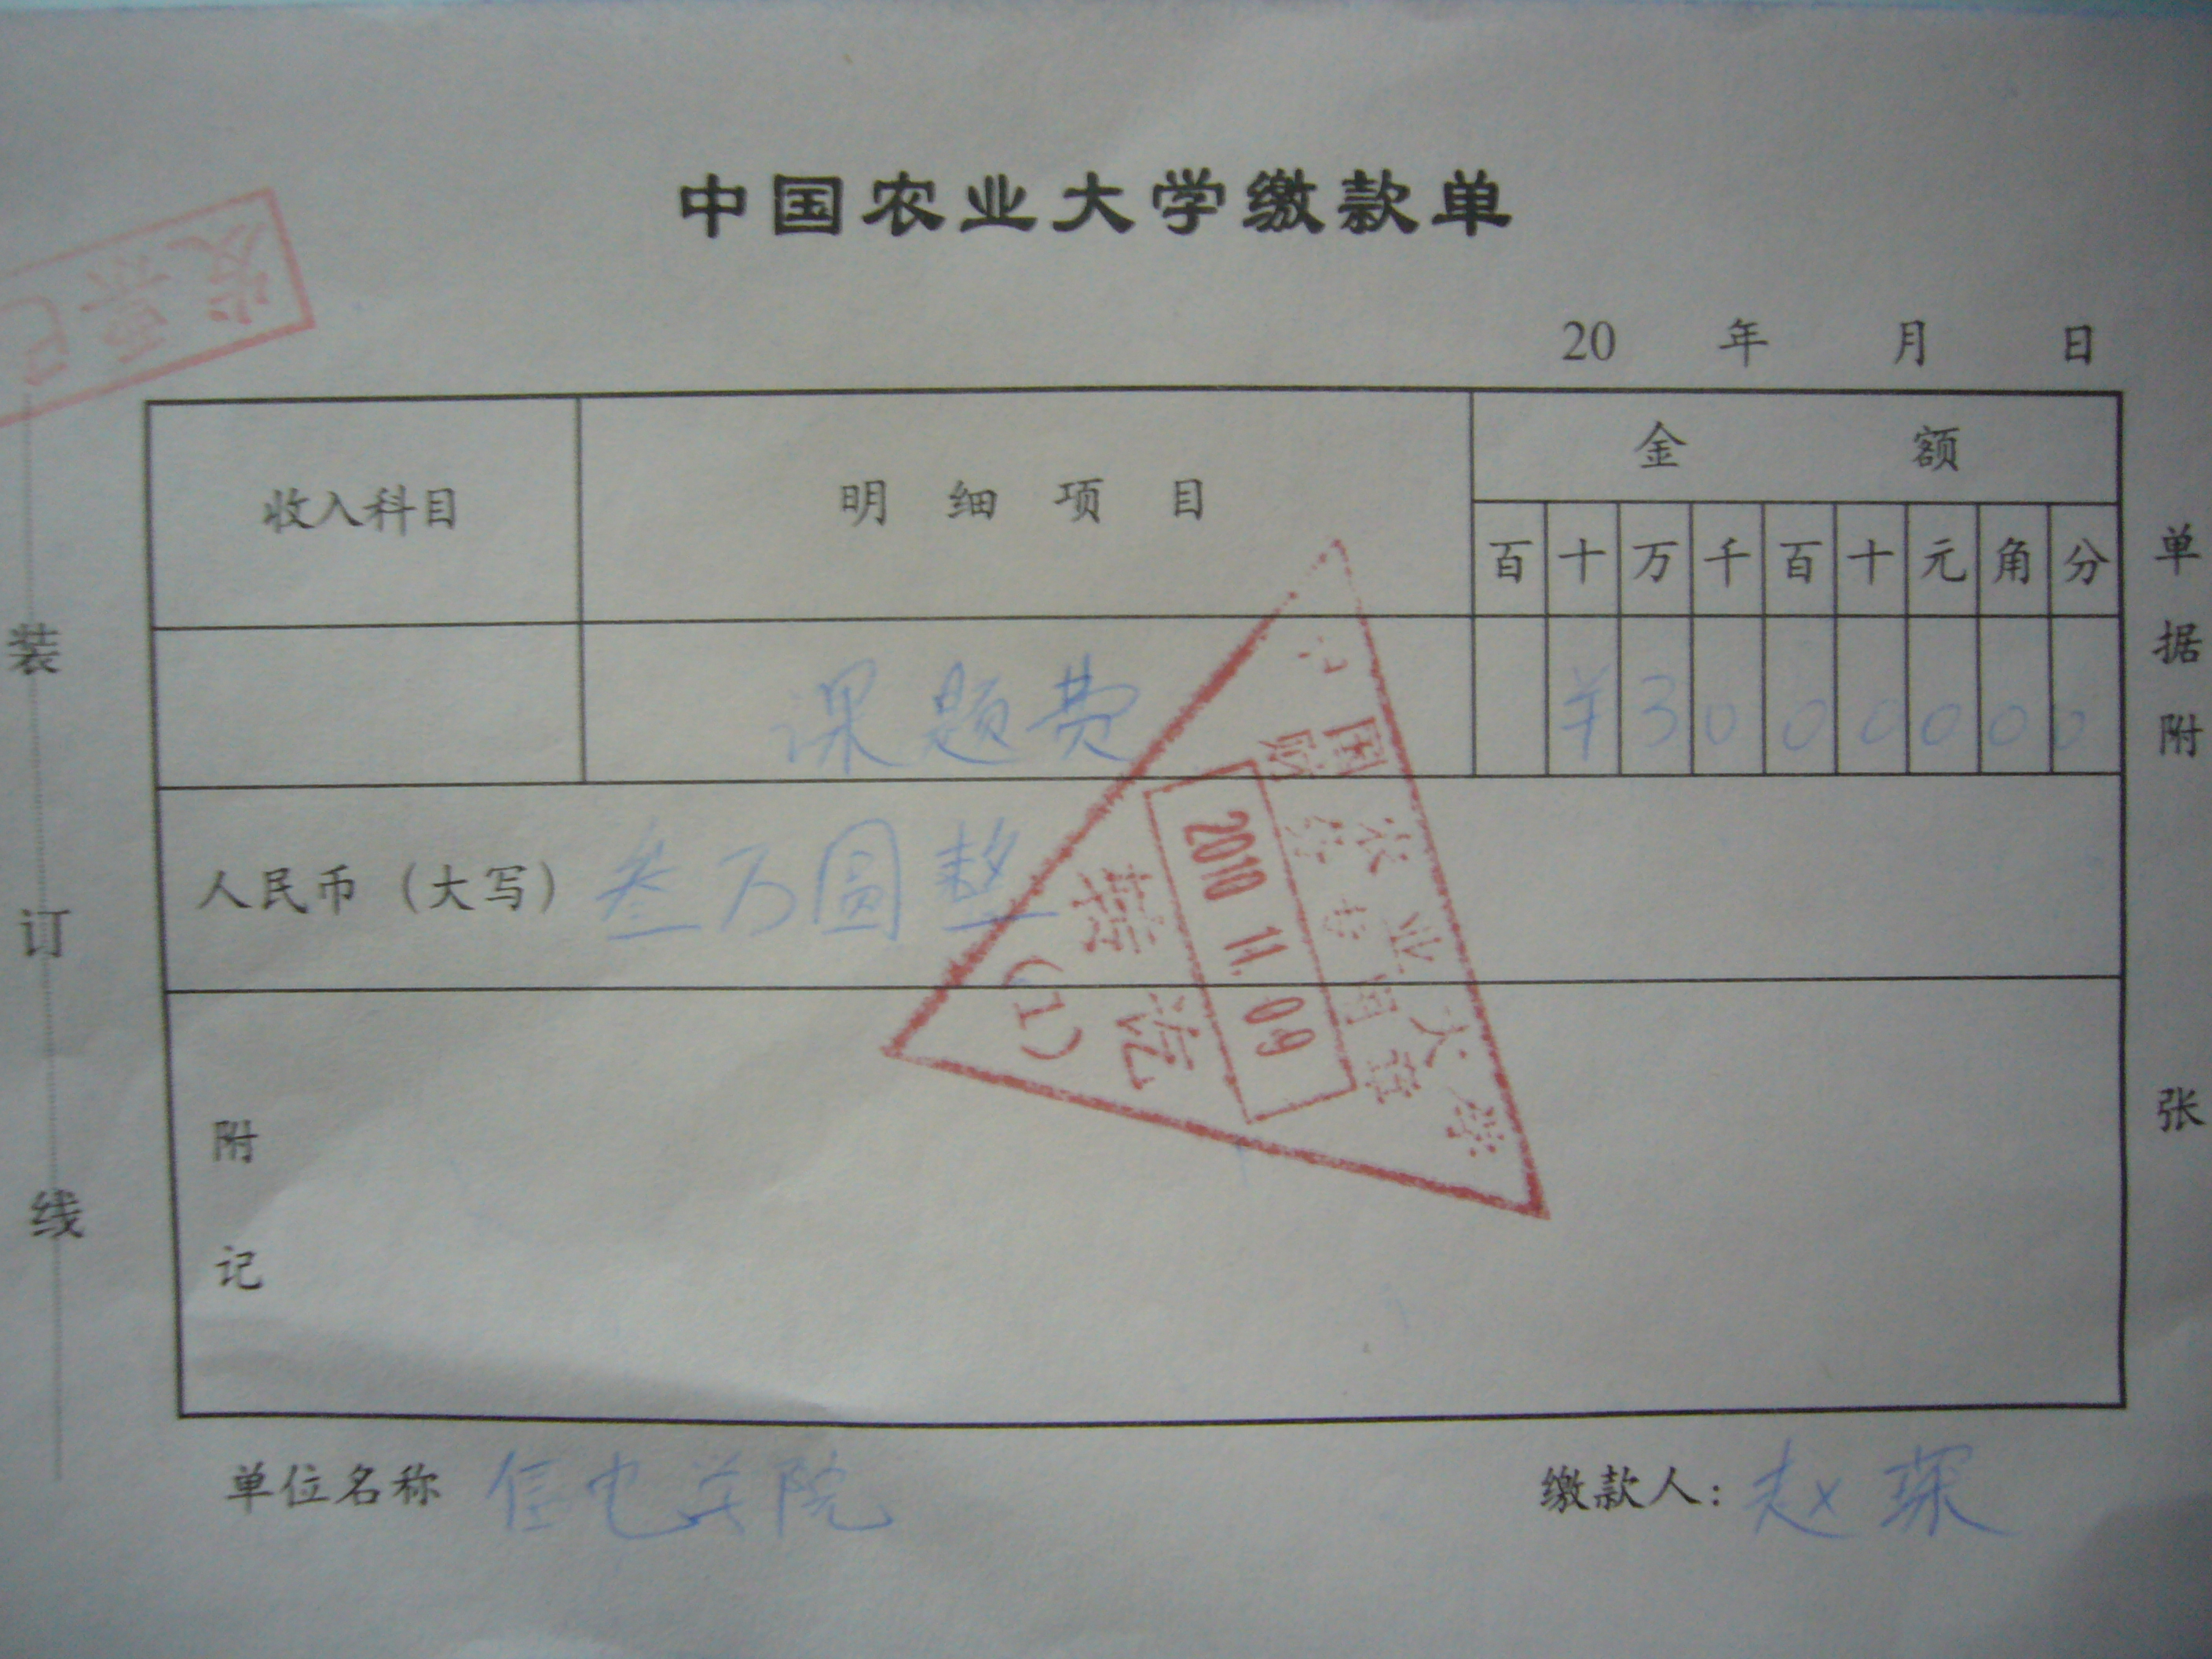 中国农业大学缴款单
发票已
20 年 月 日
收入科目 明细项目 金额
百 十 万 千 百 十 元 角 分
课题费 ¥ 3 0 0 0 0 0 0
人民币（大写） 叁万圆整
附记
国农业大学
财务专用章
2010 11. 09
转讫
(1)
装订线
单据附 张
单位名称 信电学院 缴款人：赵琛